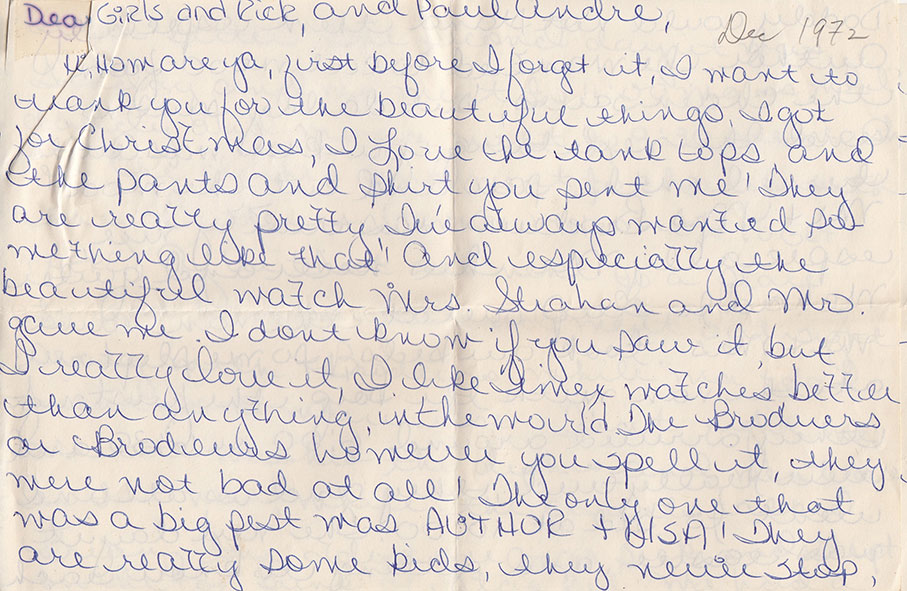 Dear Girls and Rick, and Paul Andre,
Dec 1972
Hi, How are ya, first before I forget it, I want to
thank you for the beautiful things, I got
for Christmas, I love the tank tops and
the pants and shirt you sent me! They
are really pretty I've always wanted so
mething like that! And especially the
beautiful watch Mrs. Strahan and Mr.
gave me. I dont know if you saw it, but
I really love it, I like Timex watches better
than anything, in the world. The Brodners
or Brodeurs however you spell it, they
were not bad at all! The only one that
was a big pest was AUTHOR + LISA! They
are really some kids, they never stop,